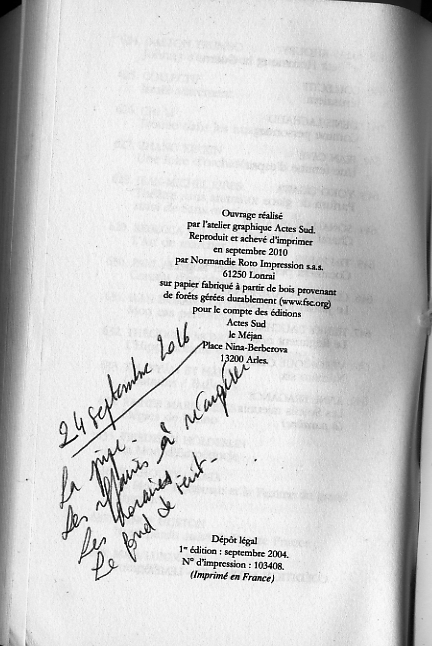 Ouvrage réalisé
par l'atelier graphique Actes Sud.
Reproduit et achevé d'imprimer
en septembre 2010
par Normandie Roto Impression s.a.s.
61250 Lonrai
sur papier fabriqué à partir de bois provenant
de forêts gérées durablement (www.fsc.org)
pour le compte des éditions
Actes Sud
le Méjan
Place Nina-Berberova
13200 Arles.
24 septembre 2016
La
Les à
Les horaires
Le fond de
Dépôt légal
1re édition : septembre 2004.
N° d'impression : 103408.
(Imprimé en France)